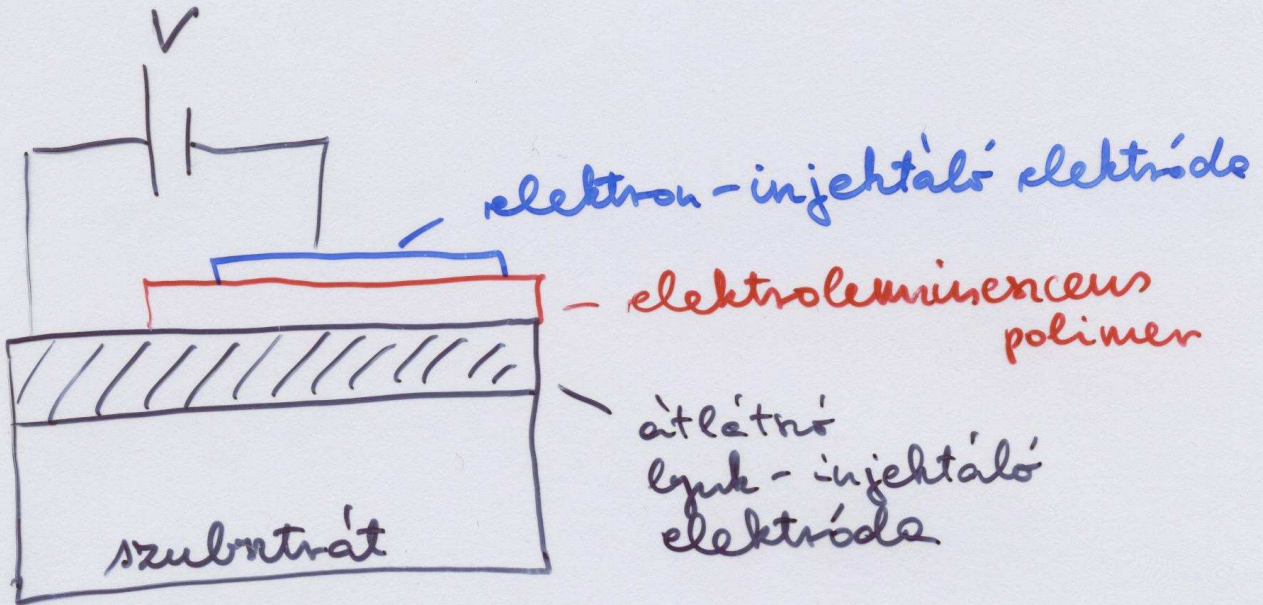 V
elektron-injektáló elektróda
elektroleminescens
polimer
átlátszó
lyuk-injektáló
elektróda
szubsztrát